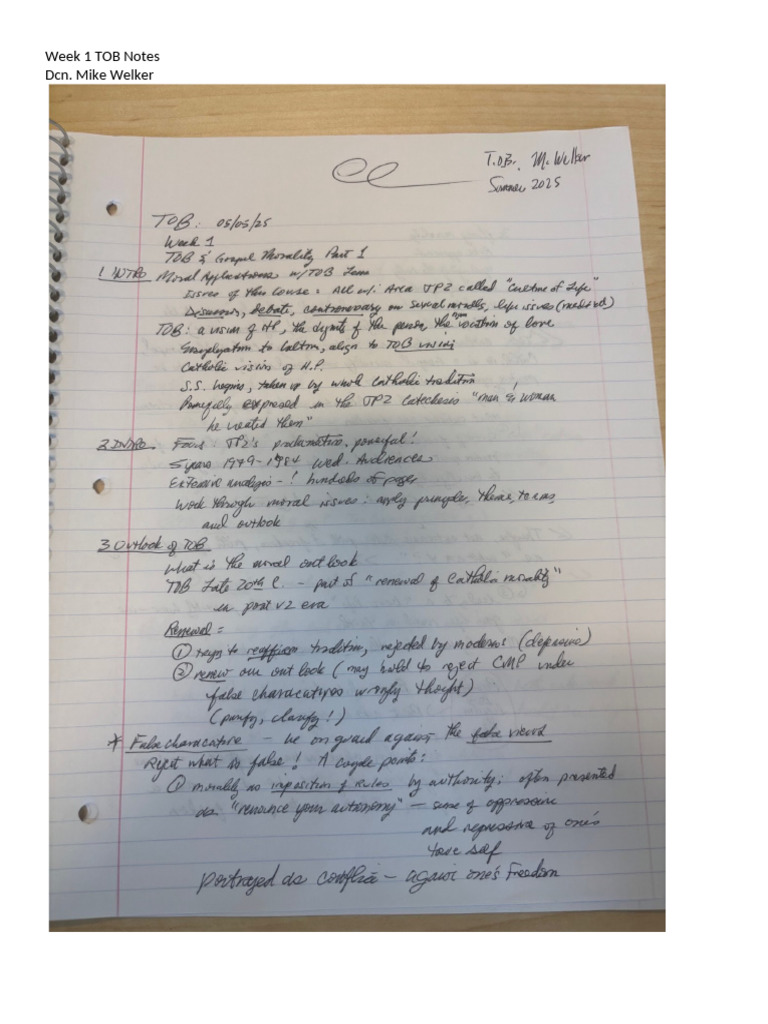 Week 1 TOB Notes
Dcn. Mike Welker
T.O.B. M. Welker
Summer 2025
TOB: 05/05/25
Week 1
TOB & Gospel Morality Part 1
1 INTRO Moral Applications w/TOB Lens
Issues of this Course: All w/i Area JP2 called "Culture of Life"
Discussion, debate, controversy on sexual morals, life issues (medical)
TOB: a vision of HP, the dignity of the person, the vocation of love
to culture, align to TOB vision
Catholic vision of H.P.
S.S. begins, taken up by whole Catholic tradition
Principally expressed in the JP2 Catechesis "man & woman
he created them"
2 INTRO Focus: JP2's proclamation, powerful!
5 years 1979-1984 Wed. Audiences
Extensive analysis - ! hundreds of pages
Work through moral issues: apply principle, theme, terms,
and outlook
3 Outlook of TOB
What is the moral outlook
TOB Late 20th C. - part of "renewal of Catholic morality"
in post V2 era
Renewal =
① trys to reaffirm tradition, rejected by moderns (depressing)
② renew our out look (may hold to reject CMP under
false characatures wrongly thought)
(purify, clarify!)
* False characature - be on guard against the false views
Reject what is false! A couple points:
① morality as imposition of rules by authority; often presented
as "renounce your autonomy" - sense of oppressive
and repressive of one's
true self
portrayed as conflict - against one's Freedom